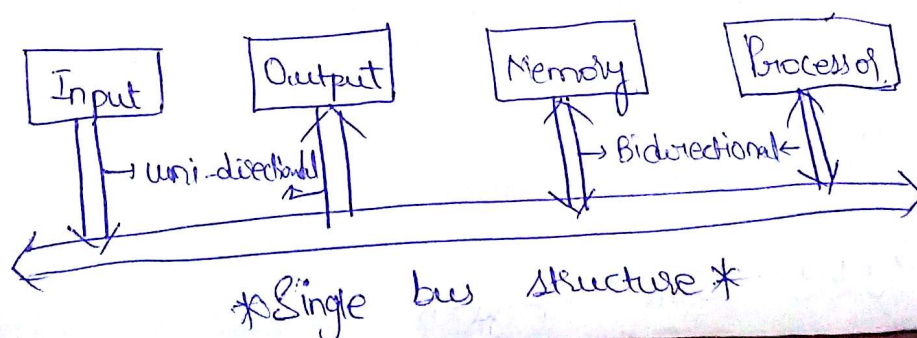 Input
Output
Memory
Processor
uni-directional
Bidirectional
*Single bus structure*